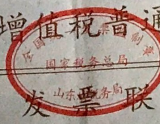 增值税普通
全国统一发票监制章
国家税务总局
山东省税务局
发票联